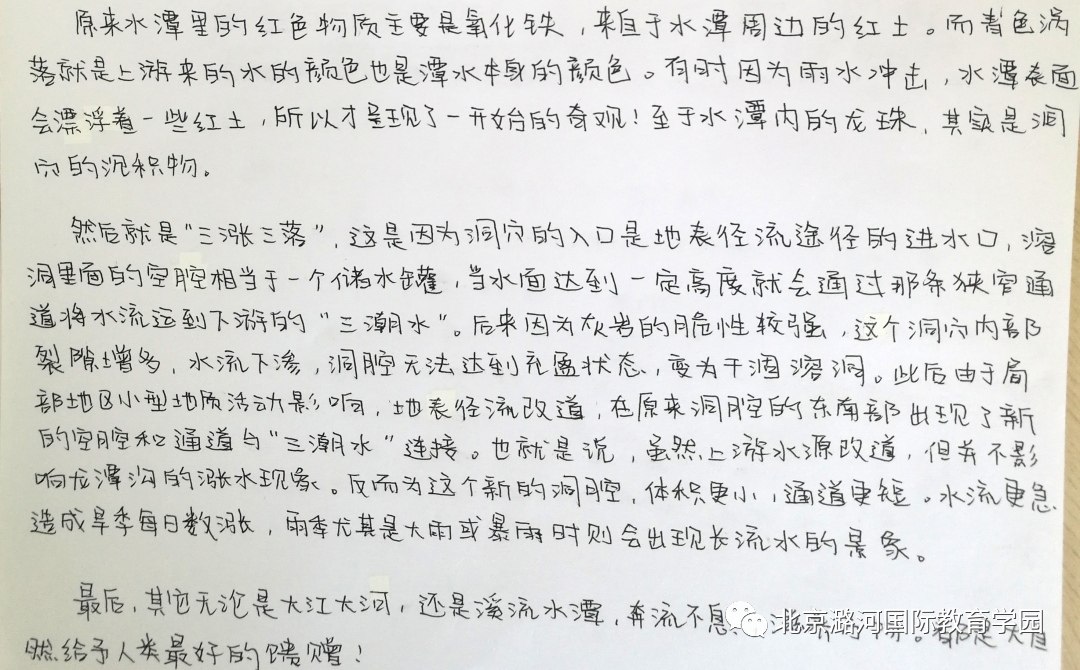 原来水潭里的红色物质主要是氧化铁，来自于水潭周边的红土。而青色涡
落就是上游来的水的颜色也是潭水本身的颜色。有时因为雨水冲击，水潭表面
会漂浮着一些红土，所以才呈现了一开始的奇观！至于水潭内的龙珠，其实是洞
穴的沉积物。
然后就是“三涨三落”，这是因为洞穴的入口是地表径流途径的进水口，溶
洞里面的空腔相当于一个储水罐，当水面达到一定高度就会通过那条狭窄通
道将水流运到下游的“三潮水”。后来因为灰岩的脆性较强，这个洞穴内部
裂隙增多，水流下渗，洞腔无法达到充盈状态，变为干涸溶洞。此后由于局
部地区小型地质活动影响，地表径流改道，在原来洞腔的东南部出现了新
的空腔和通道与“三潮水”连接。也就是说，虽然上游水源改道，但并不影
响龙潭沟的涨水现象。反而为这个新的洞腔，体积更小，通道更短。水流更急
造成旱季每日数涨，雨季尤其是大雨或暴雨时则会出现长流水的景象。
最后，其它无论是大江大河，还是溪流水潭，奔流不息 都是大自
然给予人类最好的馈赠！
北京潞河国际教育学园